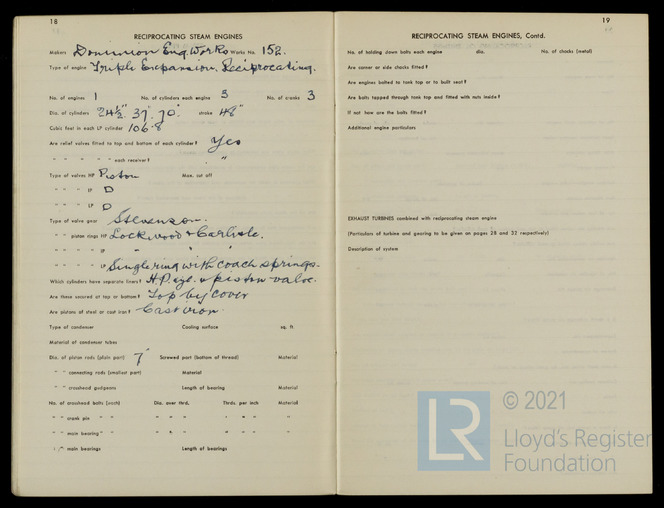 18
RECIPROCATING STEAM ENGINES
Makers Dominion Eng. Works Works No. 152.
Type of engine Triple Expansion. Reciprocating.
No. of engines 1 No. of cylinders each engine 3 No. of cranks 3
Dia. of cylinders 24½" 37" 70" stroke 48"
Cubic feet in each LP cylinder 106.8
Are relief valves fitted to top and bottom of each cylinder? Yes
" " " " " each receiver? "
Type of valves HP Piston Max. cut off
" " " IP D
" " " LP D
Type of valve gear Stevenson.
" " piston rings HP Lockwood & Carlisle.
" " " " IP " "
" " " " LP Single ring with coach springs.
Which cylinders have separate liners? H.P. cyl. & piston valve.
Are these secured at top or bottom? Top by cover
Are pistons of steel or cast iron? Cast iron
Type of condenser Cooling surface sq. ft.
Material of condenser tubes
Dia. of piston rods (plain part) 7" Screwed part (bottom of thread) Material
" " connecting rods (smallest part) Material
" " crosshead gudgeons Length of bearing Material
No. of crosshead bolts (each) Dia. over thrd. Thrds. per inch Material
" " crank pin " " " " " " " " "
" " main bearing " " " " " " " " "
" " main bearings Length of bearings
19
RECIPROCATING STEAM ENGINES, Contd.
No. of holding down bolts each engine dia. No. of chocks (metal)
Are corner or side chocks fitted?
Are engines bolted to tank top or to built seat?
Are bolts tapped through tank top and fitted with nuts inside?
If not how are the bolts fitted?
Additional engine particulars
EXHAUST TURBINES combined with reciprocating steam engine
(Particulars of turbine and gearing to be given on pages 28 and 32 respectively)
Description of system
LR
© 2021
Lloyd's Register
Foundation